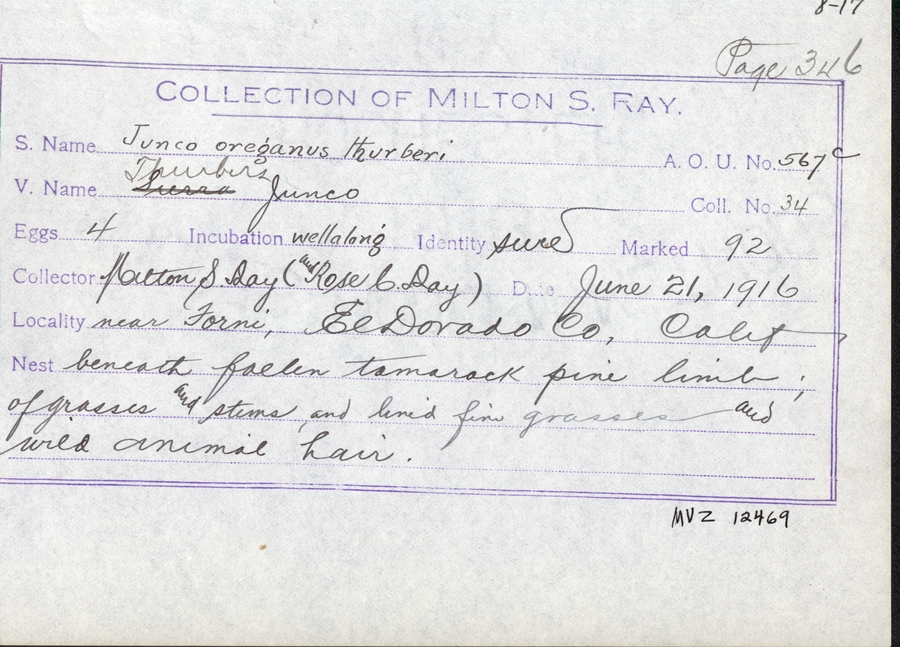 8-17
Page 346
COLLECTION OF MILTON S. RAY.
S. Name Junco oreganus thurberi A. O. U. No. 567c
Thurbers
V. Name Sierra Junco Coll. No. 34
Eggs 4 Incubation well along Identity sure Marked 92
Collector Milton S. Ray (and Rose C. Ray) Date June 21, 1916
Locality near Forni, El Dorado Co, Calif
Nest beneath fallen tamarack pine limb;
of grasses and stems and lined fine grasses and
wild animal hair.
MVZ 12469